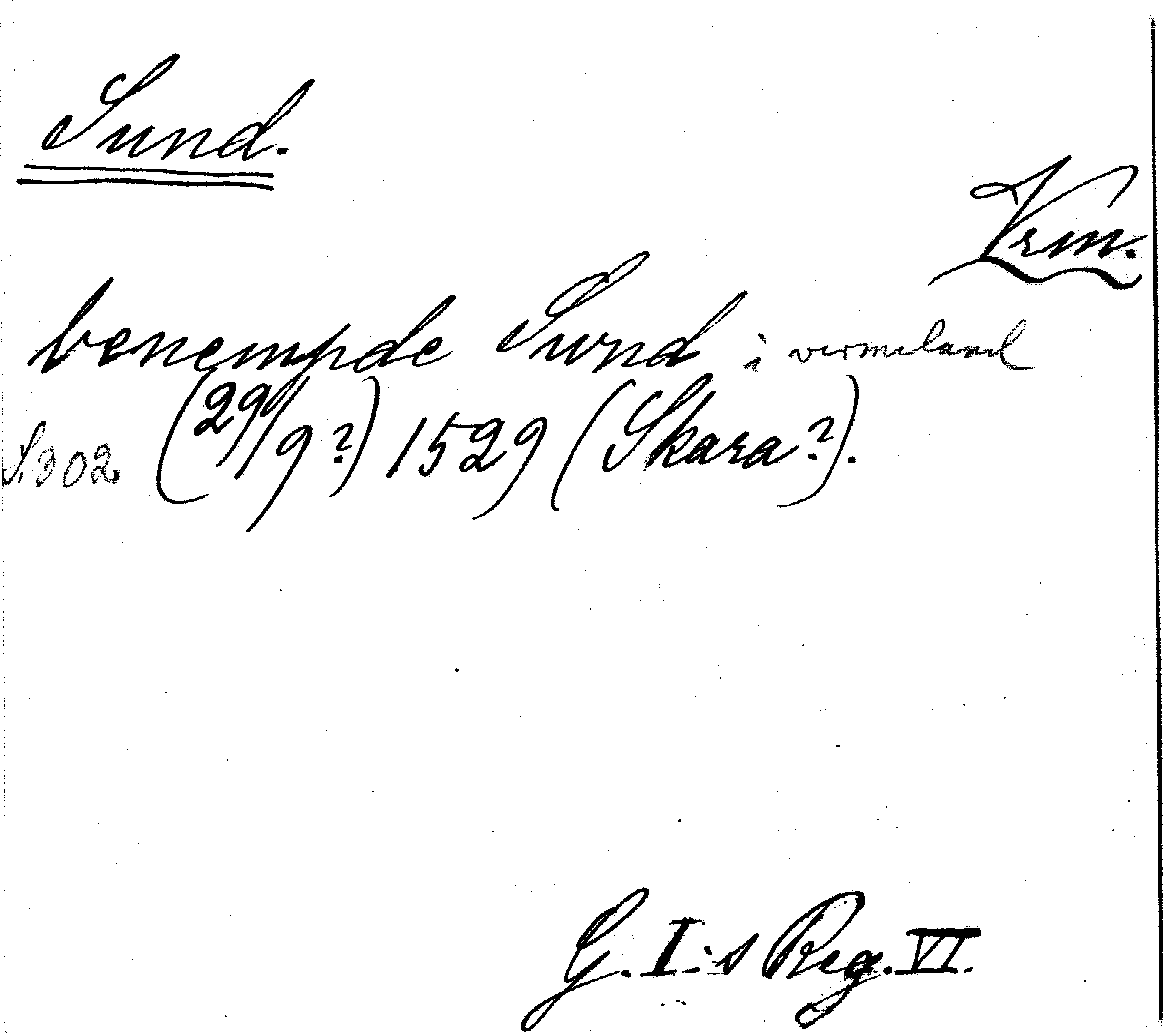 Sund.
Vrm.
benempde Sund i vermeland
S. 302. (29/9?) 1529 (Skara?).
G. I:s Reg. VI.